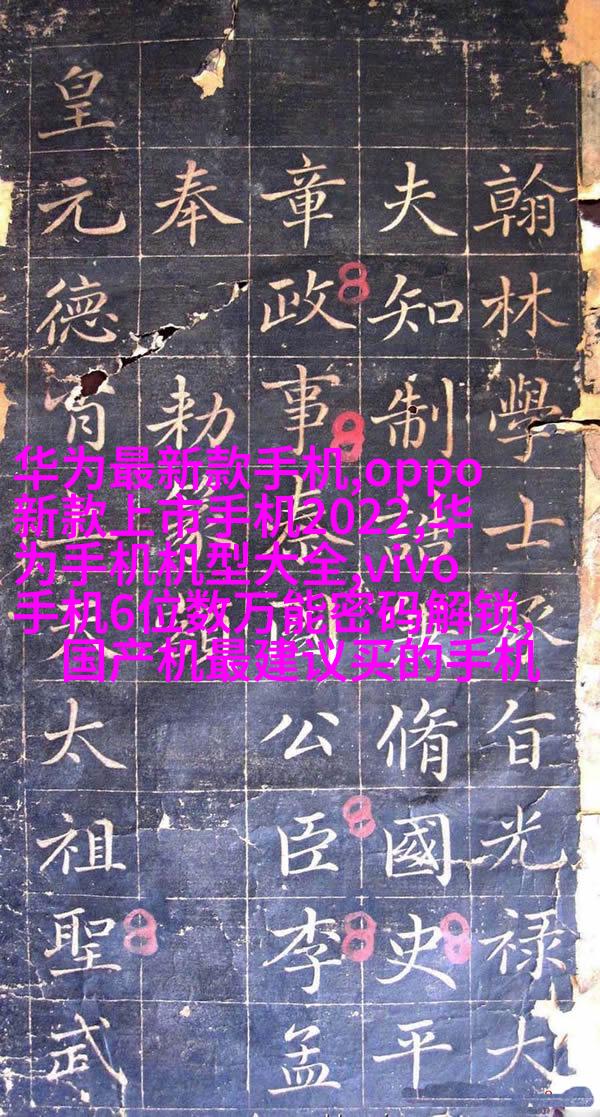 翰林學士承旨光禄大
夫知制誥兼脩國史平
章政事秦國公臣李孟
奉勅篆額
皇元德太祖聖武
华为最新款手机,oppo
新款上市手机2022,华
为手机机型大全,vivo
手机6位数万能密码解锁,
国产机最建议买的手机
8
8
8
8
8
8